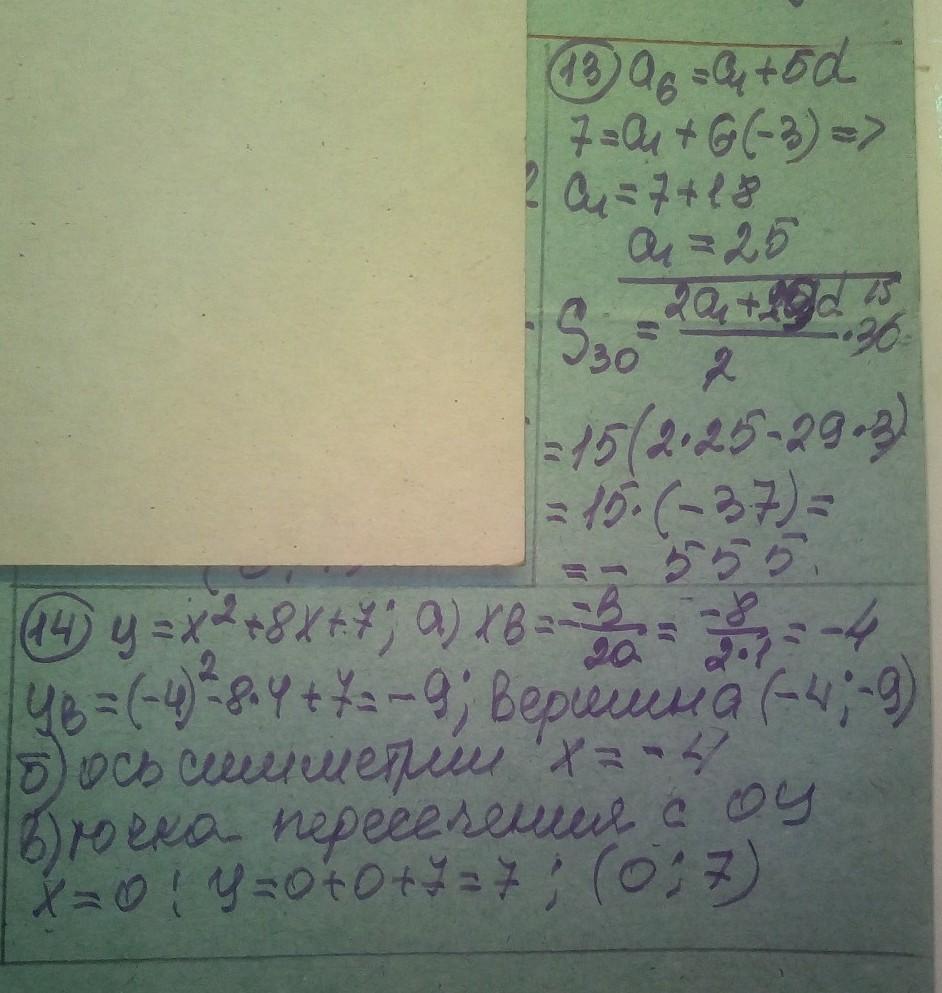 13 a₆ = a₁ + 5d
7 = a₁ + 6(-3) =>
2 a₁ = 7 + 18
a₁ = 25
S₃₀ = (2a₁ + 29d)/2 · 30 15
= 15(2·25 - 29·3)
= 15·(-37) =
= - 555.
14 y = x² + 8x + 7; а) xв = -в/2a = -8/2·1 = -4
yв = (-4)² - 8·4 + 7 = -9; Вершина (-4; -9)
б) ось симметрии x = -4
в) точка пересечения с оу
x = 0; y = 0 + 0 + 7 = 7; (0; 7)